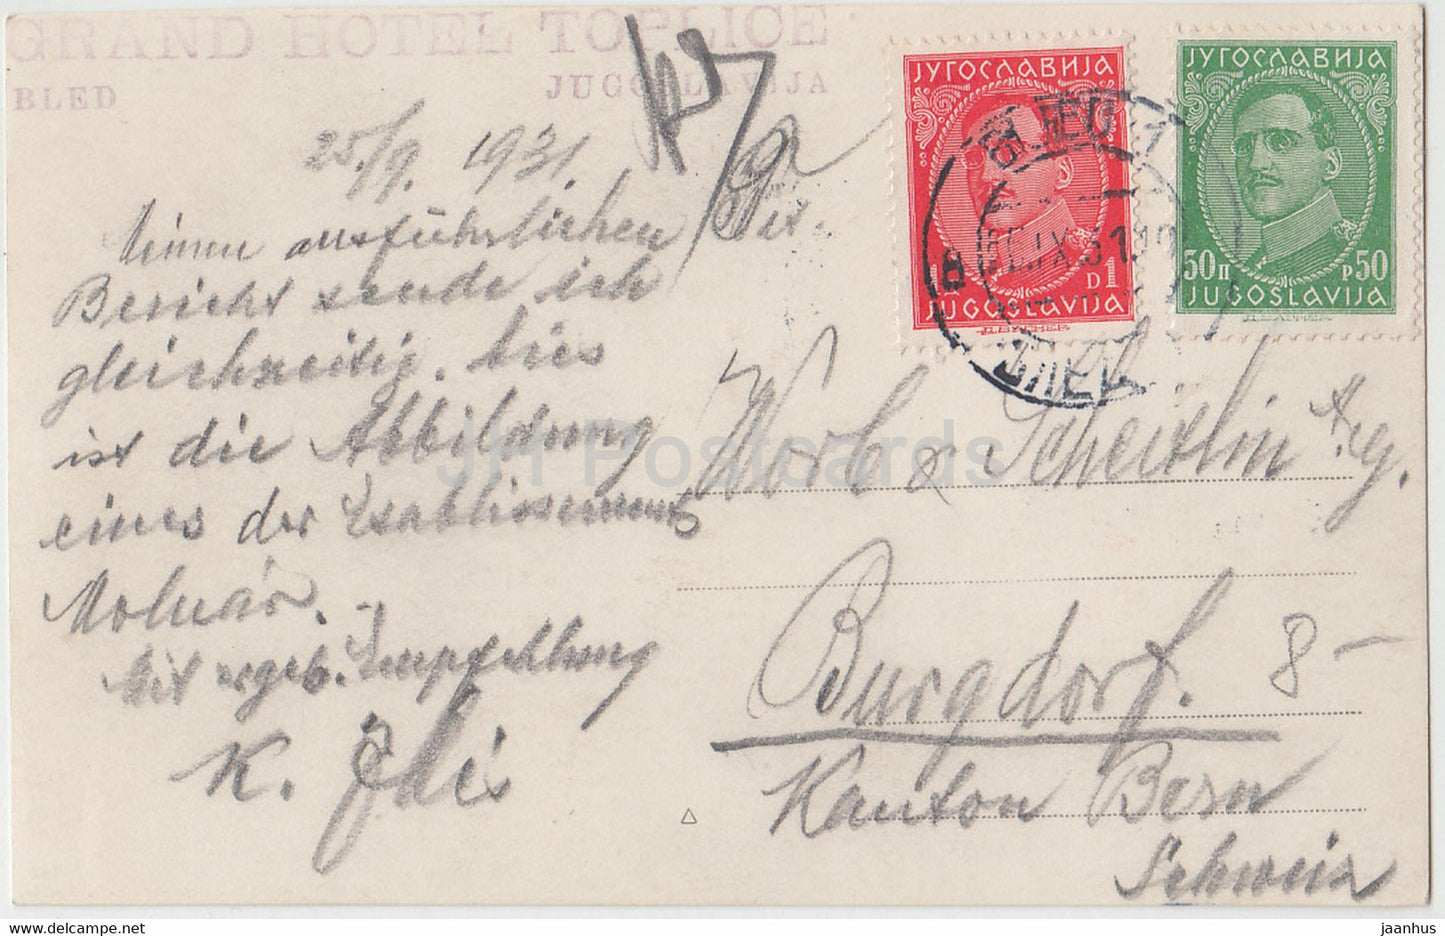 GRAND HOTEL TOPLICE
BLED JUGOSLAVIJA
25/9. 1931.
Meinen ausführlichen
Bericht sende ich
gleichzeitig. Dies
ist die Abbildung
eines der Etablissements
Molnár.
Mit ergeb. Empfehlung
K.
ЈУГОСЛАВИЈА
1 D 1
JUGOSLAVIJA
ЈУГОСЛАВИЈА
50 П P 50
JUGOSLAVIJA
BLED
БЛЕД
Worb & Scheitlin A.g.
Burgdorf.
Kanton Bern
Schweiz
8-
JH Postcards
jaanhus